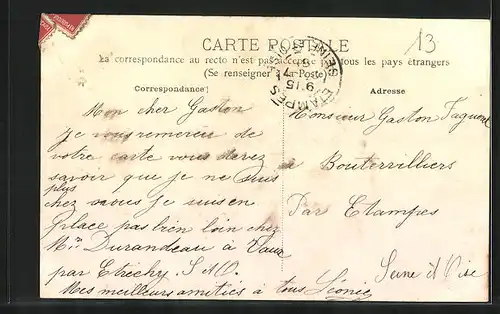 CARTE POSTALE
13
La correspondance au recto n'est pas acceptée par tous les pays étrangers
(Se renseigner à la Poste)
Correspondance
Adresse
ETAMPES
SEINE
9 15
Mon cher Gaston
je vous remercie de
votre carte vous devez
savoir que je ne suis
plus
chez vous je suis en
place pas bien loin chez
Mr Durandeau à Vaux
par Etrechy. S & O.
Mes meilleurs amitiés à tous Léonie
Monsieur Gaston
à Boutervilliers
Par Etampes
Seine et Oise